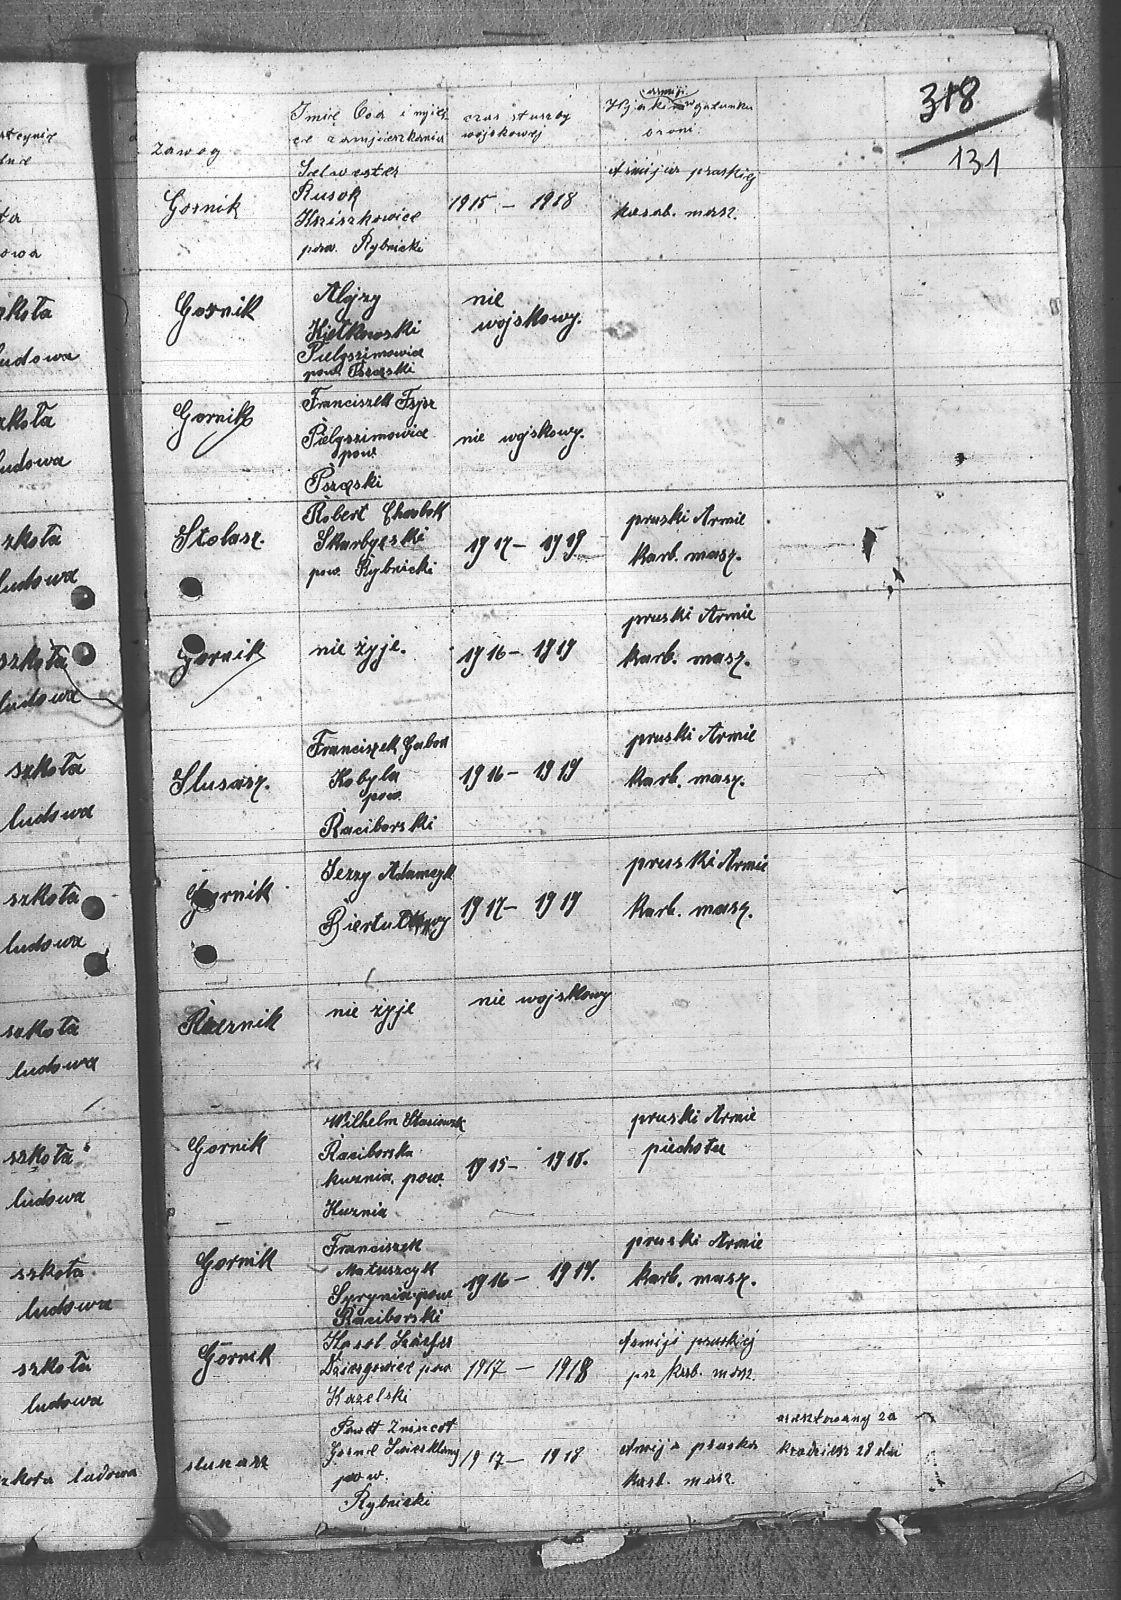 318
131
zawog
Imię Oca i miejs
ce zamjieszkania
czas służby
wojskowej
armji
W jakim gatunku
broni
Gornik
Selwester
Rusok
Krziszkowice
pow. Rybnicki
1915 – 1918
Armijer pruskiej
karab. masz.
szkoła
ludowa
Gornik
Alojzy
Kiełkowski
Pielgrzimowice
pow. Pszczski
nie
wojskowy.
szkoła
ludowa
Gornik
Franciszek
Pielgrzimowice
pow.
Pszcski
nie wojskowy.
szkoła
ludowa
Stolasz.
Robert Chrobok
Skarbyeski
pow. Rybnicki
1917 – 1919
pruski Armie
Karb. masz.
szkoła
ludowa
Gornik
nie żyje.
1916 – 1919
pruski Armie
Karb. masz.
szkoła
ludowa
Slusasz.
Franciszek Gabor
Kobyla
pow.
Raciborski
1916 – 1919
pruski Armie
Karb. masz.
szkoła
ludowa
Gornik
Jerzy Adamczyk
1917 – 1919
pruski Armie
Karb. masz.
szkoła
ludowa
Rzeznik
nie żyje
nie wojskowy
szkoła
ludowa
Gornik
Wilhelm
Raciborska
kuznia pow.
Kuznia
1915 – 1918.
pruski Armie
piechota
szkoła
ludowa
Gornik
Franciszek
Matuszcyk
Syrynia pow
Raciborski
1916 – 1919.
pruski Armie
Karb. masz.
szkoła
ludowa
Górnik
Karol
Dziergowice pow.
Kozelski
1917 – 1918
Armiji pruskiej
prz karb. masz.
szkoła ludowa
slusarz
Paweł
Gorne Swierklany
pow.
Rybnicki
1917 – 1918
Armija pruska
karb. masz.
aresztowany za
kradziesz 28 dni